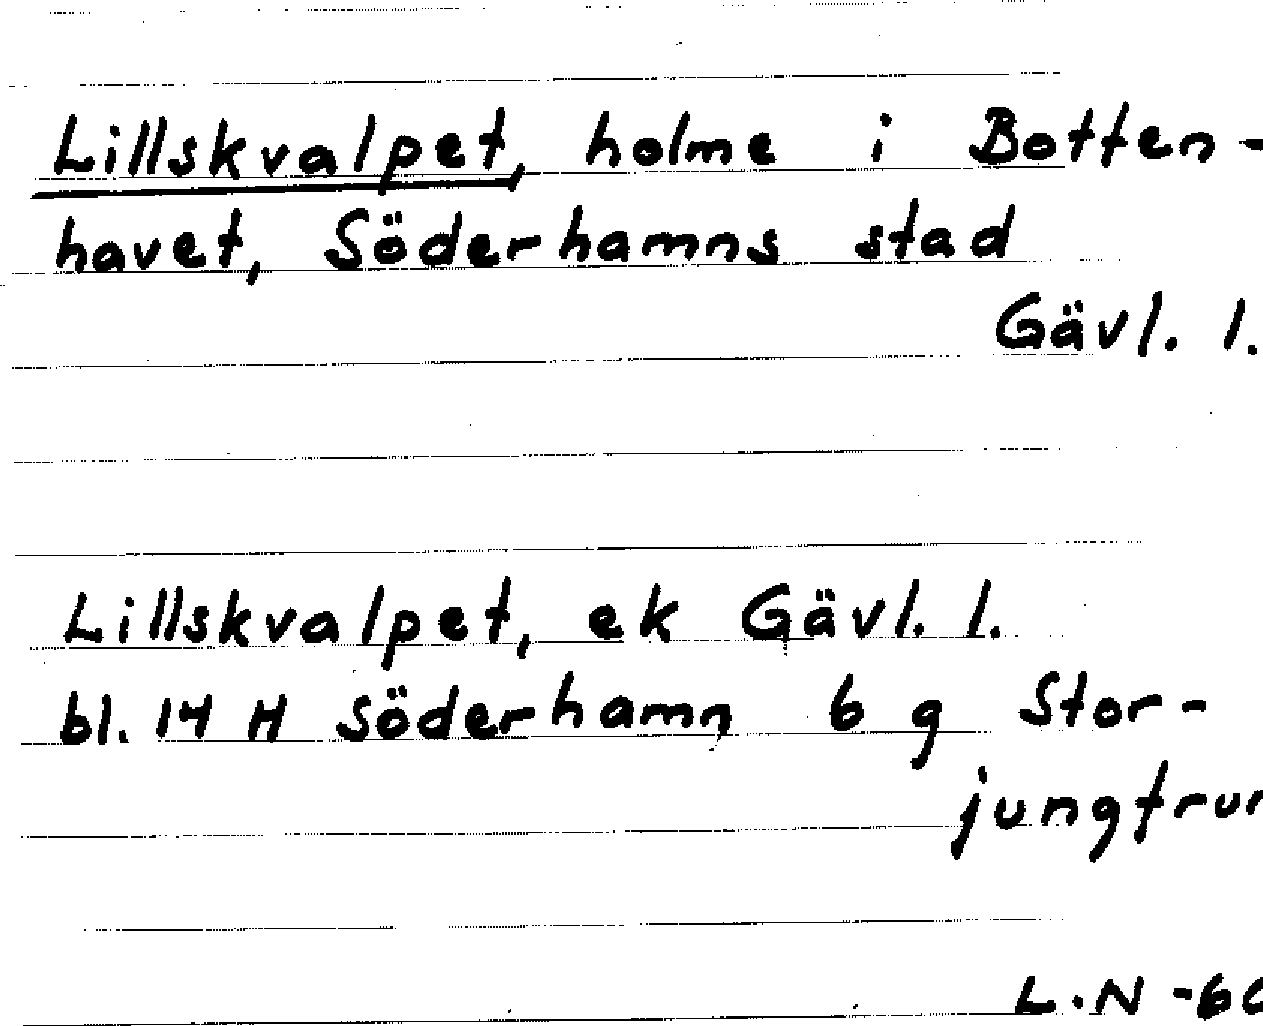 Lillskvalpet, holme i Botten-
havet, Söderhamns stad
Gävl. l.
Lillskvalpet, ek Gävl. l.
bl. 14 H Söderhamn 6 g Stor-
jungfrun
L.N -60